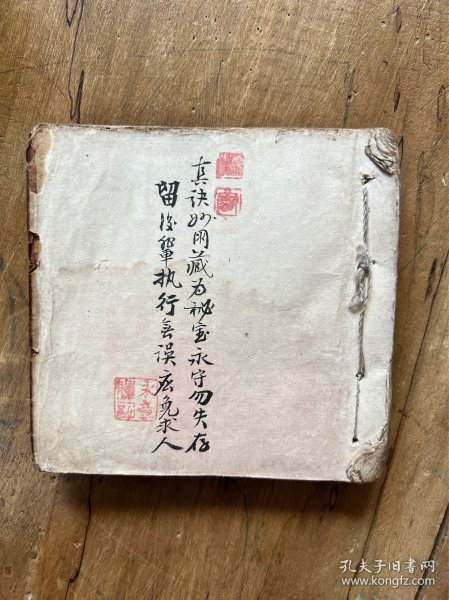 真诀妙用藏为秘宝永守勿失存
留后辈执行無误庶免求人
孔夫子旧书网
www.kongfz.com